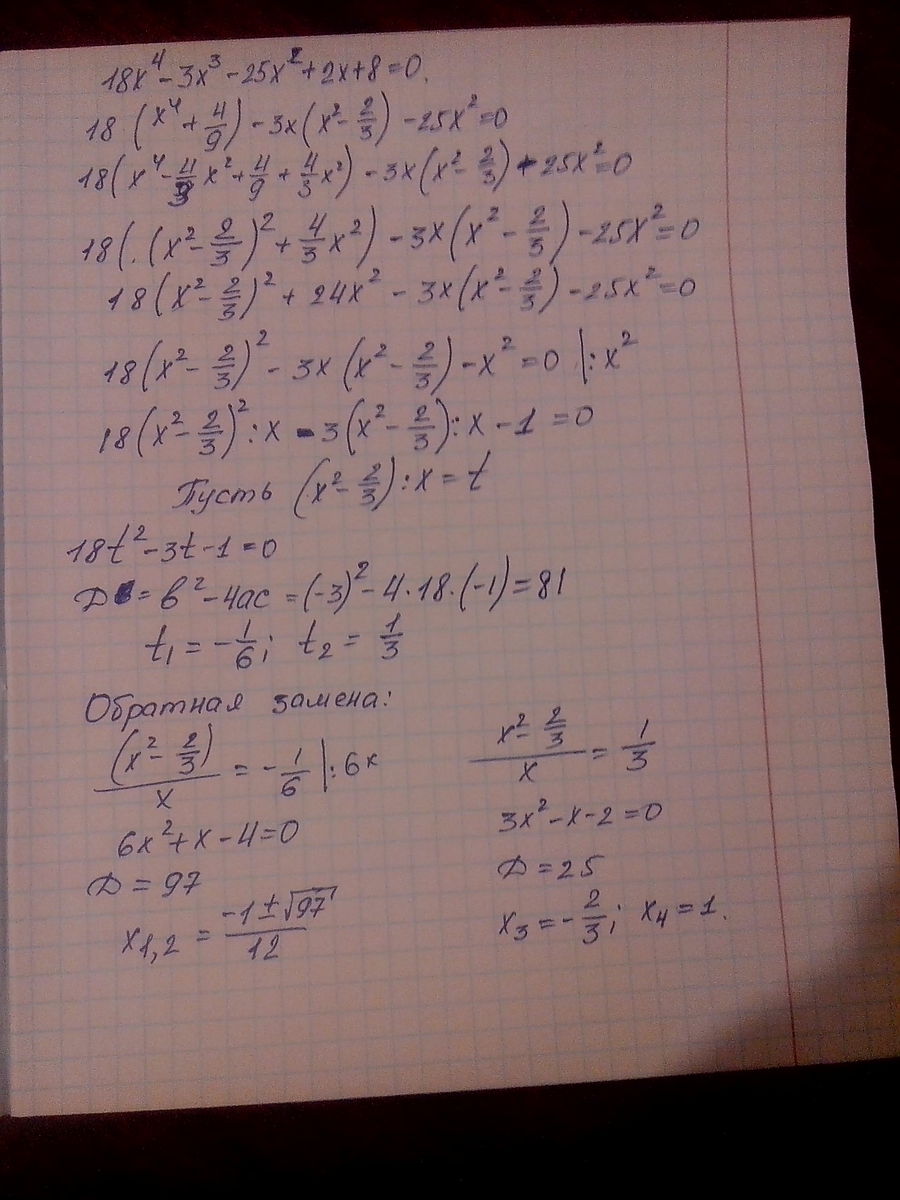 18x⁴ - 3x³ - 25x² + 2x + 8 = 0.
18 · (x⁴ + 4/9) - 3x(x² - 2/3) - 25x² = 0
18(x⁴ - 4/3 x² + 4/9 + 4/3 x²) - 3x(x² - 2/3) - 25x² = 0
18(·(x² - 2/3)² + 4/3 x²) - 3x(x² - 2/3) - 25x² = 0
18(x² - 2/3)² + 24x² - 3x(x² - 2/3) - 25x² = 0
18(x² - 2/3)² - 3x(x² - 2/3) - x² = 0 |:x²
18(x² - 2/3)² : x - 3(x² - 2/3) : x - 1 = 0
Пусть (x² - 2/3) : x = t
18t² - 3t - 1 = 0
D = b² - 4ac = (-3)² - 4 · 18 · (-1) = 81
t₁ = -1/6; t₂ = 1/3
Обратная замена:
(x² - 2/3)/x = -1/6 |:6x
6x² + x - 4 = 0
D = 97
x₁,₂ = (-1 ± √97)/12
(x² - 2/3)/x = 1/3
3x² - x - 2 = 0
D = 25
x₃ = -2/3; x₄ = 1.